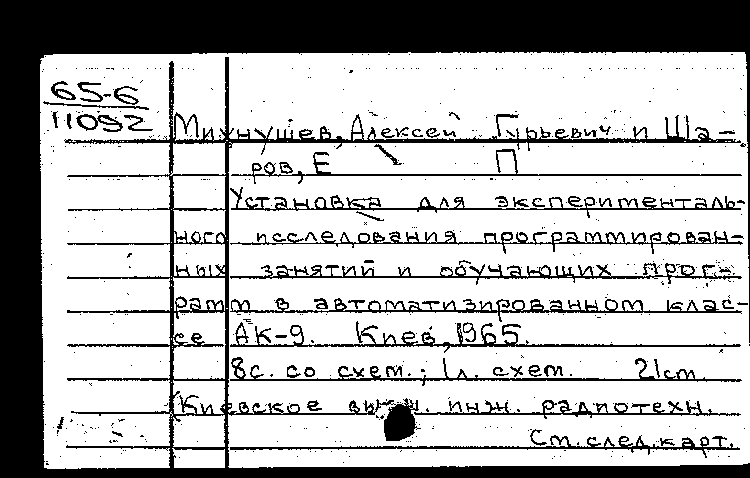 65-6
11092
Михнушев, Алексей Гурьевич и Ша-
ров, Е П
Установка для эксперименталь-
ного исследования программирован-
ных занятий и обучающих прог-
рамм в автоматизированном клас-
се АК-9. Киев, 1965.
8с. со схем.; 1л. схем. 21см
(Киевское инж. радиотехн.
См. след. карт.